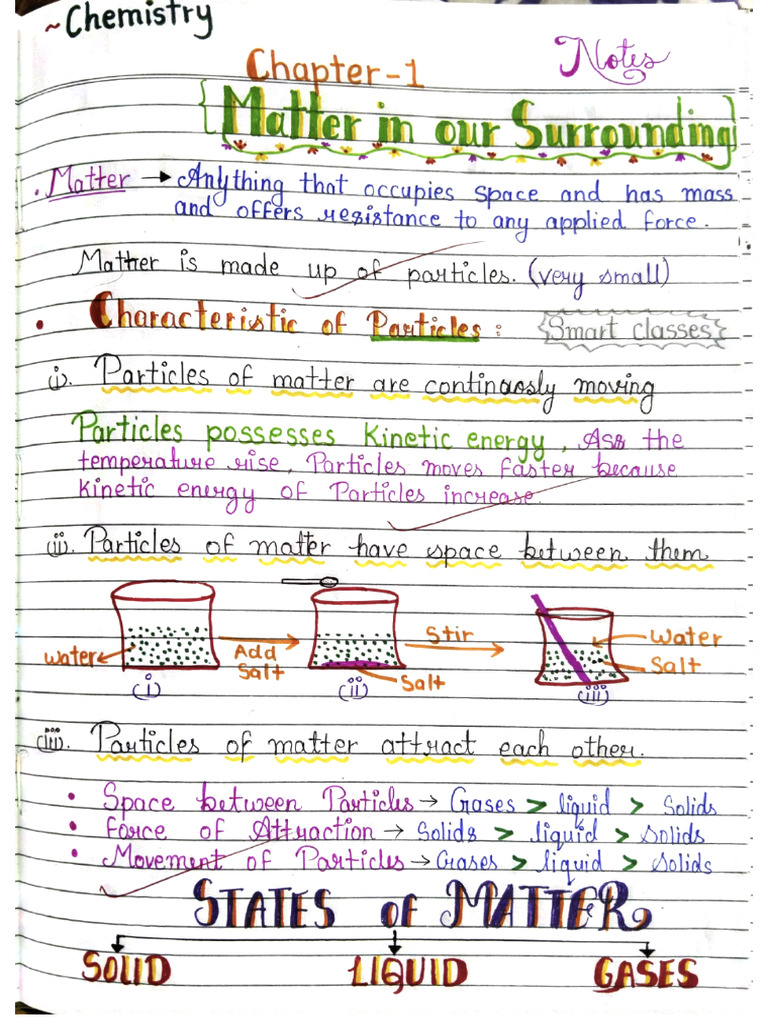 ~Chemistry
Notes
Chapter-1
{Matter in our Surrounding}
. Matter → Anything that occupies space and has mass
and offers resistance to any applied force.
Matter is made up of particles. (very small)
• Characteristic of Particles :
Smart classes
(i). Particles of matter are continously moving
Particles possesses Kinetic energy, Ass the
temperature rise, Particles moves faster because
Kinetic energy of Particles increase.
(ii). Particles of matter have space between them
Stir
Water
water
Add
Salt
Salt
Salt
(i)
(ii)
(iii)
(iii). Particles of matter attract each other.
• Space between Particles → Gases > liquid > Solids
• Force of Attraction → Solids > liquid > Solids
• Movement of Particles → Gases > liquid > Solids
STATES OF MATTER
SOLID LIQUID GASES